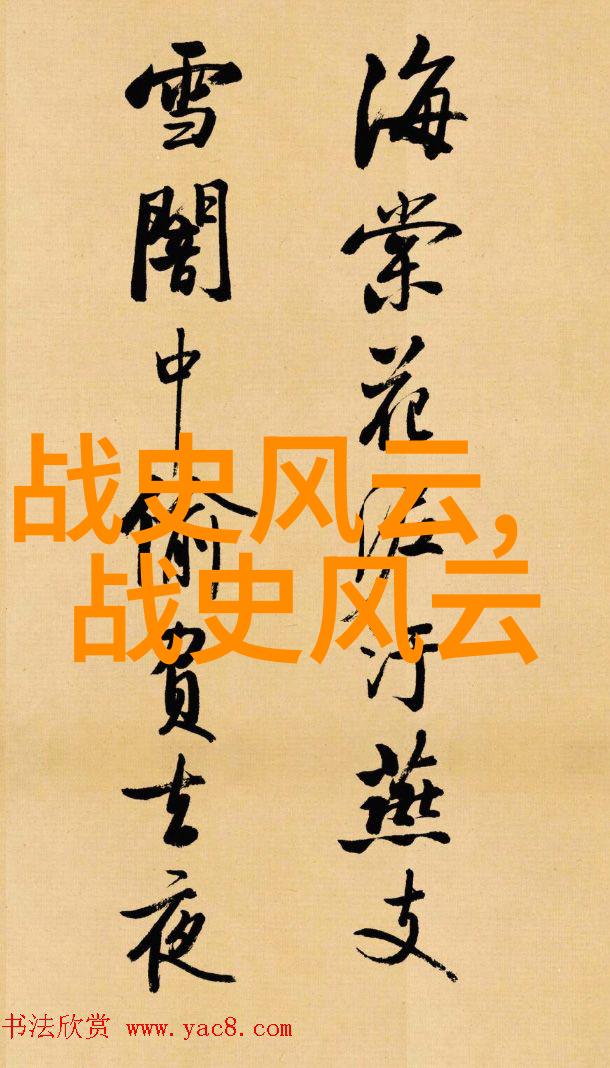 海棠花泥汙燕支
雪闇中偷負去夜
战史风云,
战史风云
书法欣赏 www.yac8.com